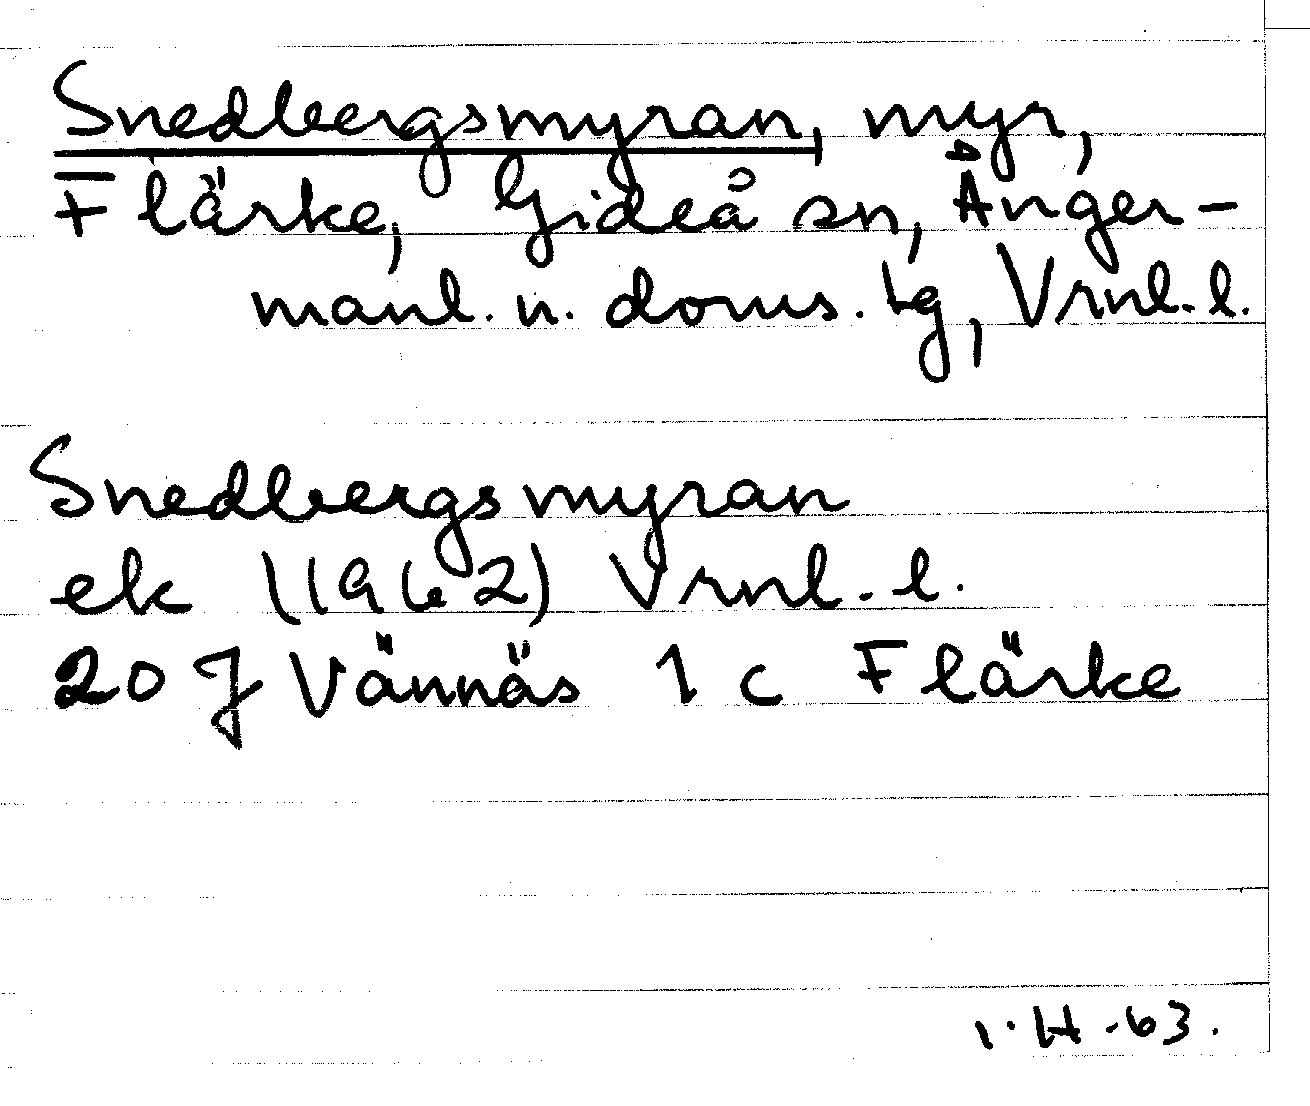 Snedbergsmyran, myr,
Flärke, Gideå sn, Ånger-
manl. n. doms. tg, Vrnl.l.
Snedbergsmyran
ek (1962) Vrnl.l.
20 J Vännäs 1 c Flärke
I.H.63.